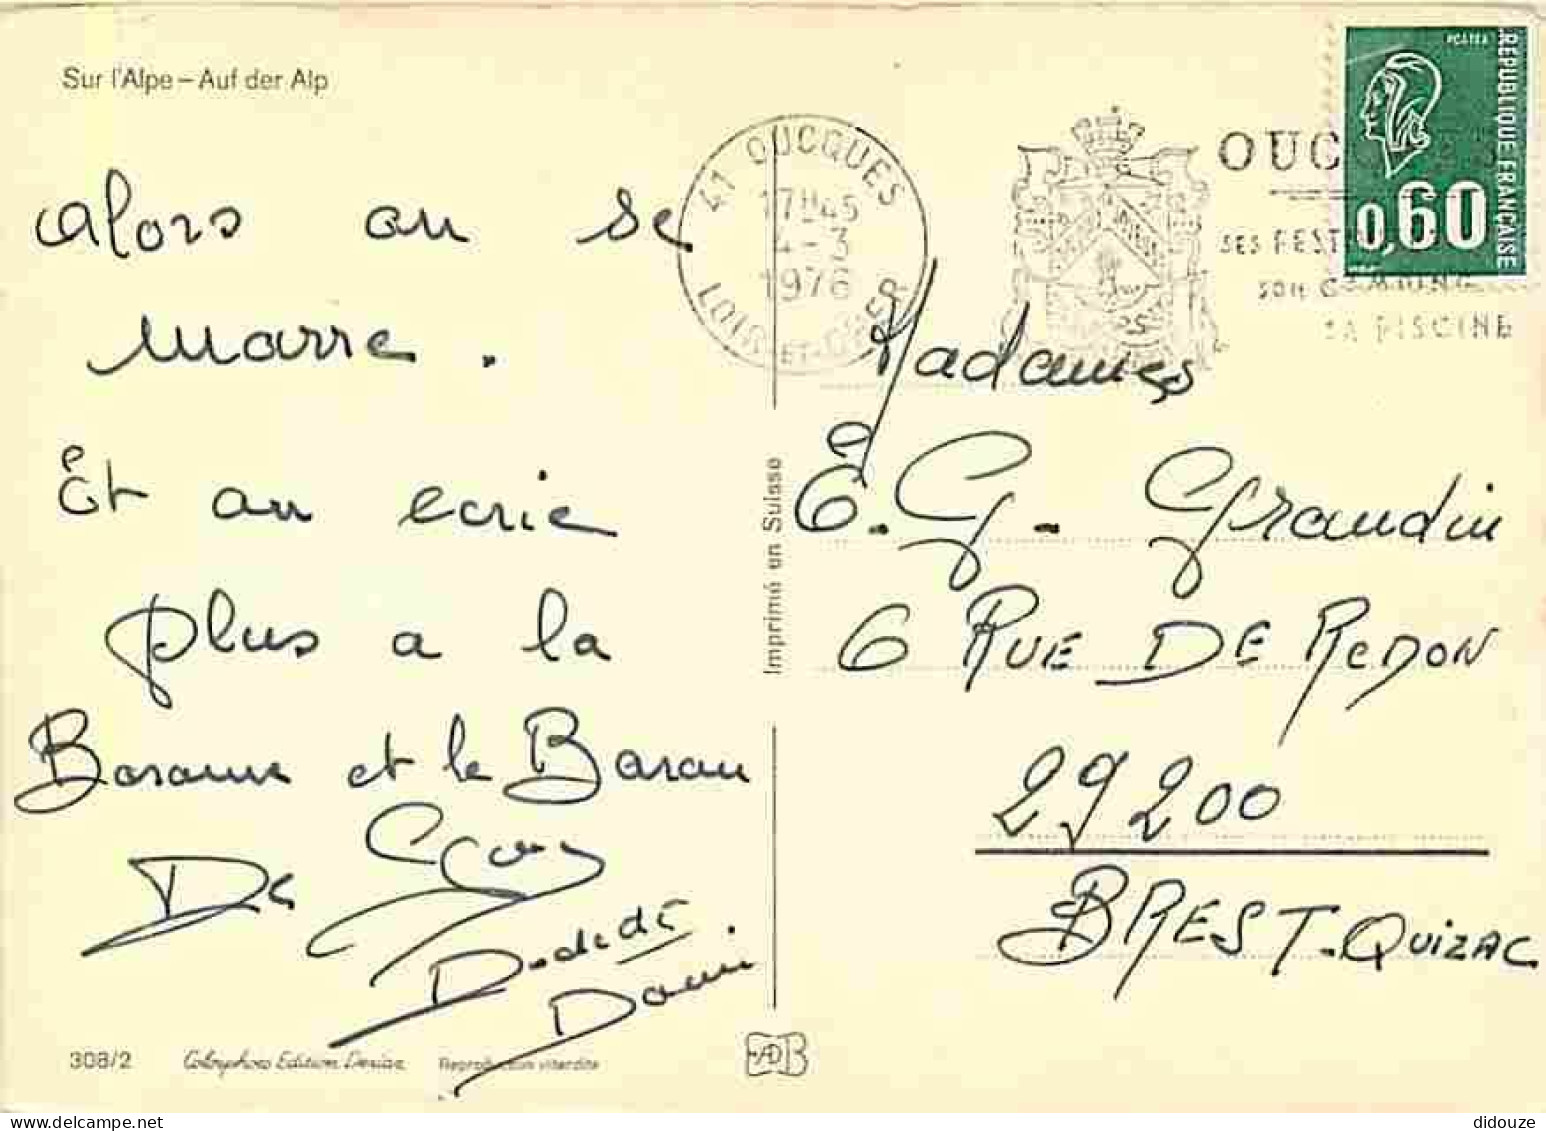 Sur l'Alpe – Auf der Alp
Alors on se
marre.
Et on ecrie
plus a la
Baronne et le Baron
De
Dédédé
Dani
308/2 Colorphoto Edition Deriaz Reproduction interdite
Imprimé en Suisse
41 OUCQUES
17H45
4-3
1976
LOIR-ET-CHER
OUC
SES REST
SON CAMPING
SA PISCINE
REPUBLIQUE FRANÇAISE
0,60
Madames
E. G. Grandin
6 RUE DE REDON
29200
BREST-QUIZAC
didouze